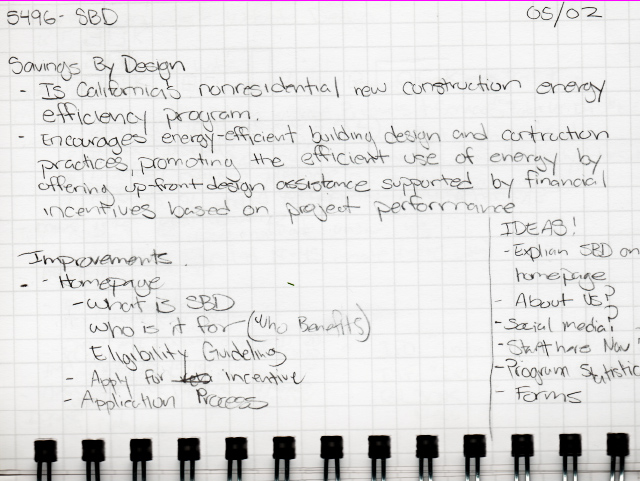 5496- SBD
05/02
Savings By Design
- Is California's nonresidential new construction energy
efficiency program.
- Encourages energy-efficient building design and contruction
practices, promoting the efficient use of energy by
offering up-front design assistance supported by financial
incentives based on project performance
Improvements.
- - Homepage
- what is SBD
who is it for - (Who Benefits)
Eligibility Guideling
- Apply for incentive
- Application Process
IDEAS!
- Explian SBD on
homepage
- About Us?
- Social media?
- Start here Nav
- Program Statistic
- Forms